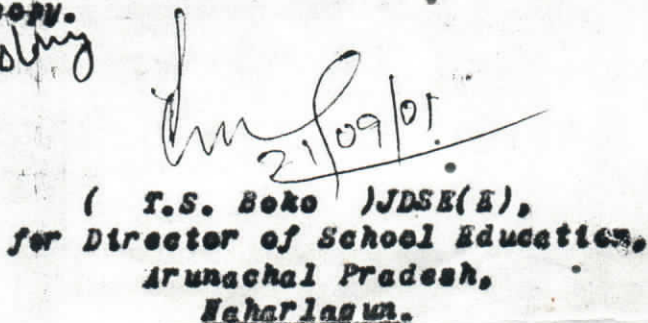 copy.
21/09/01
( T.S. Boko )JDSE(E),
for Director of School Education,
Arunachal Pradesh,
Naharlagun.